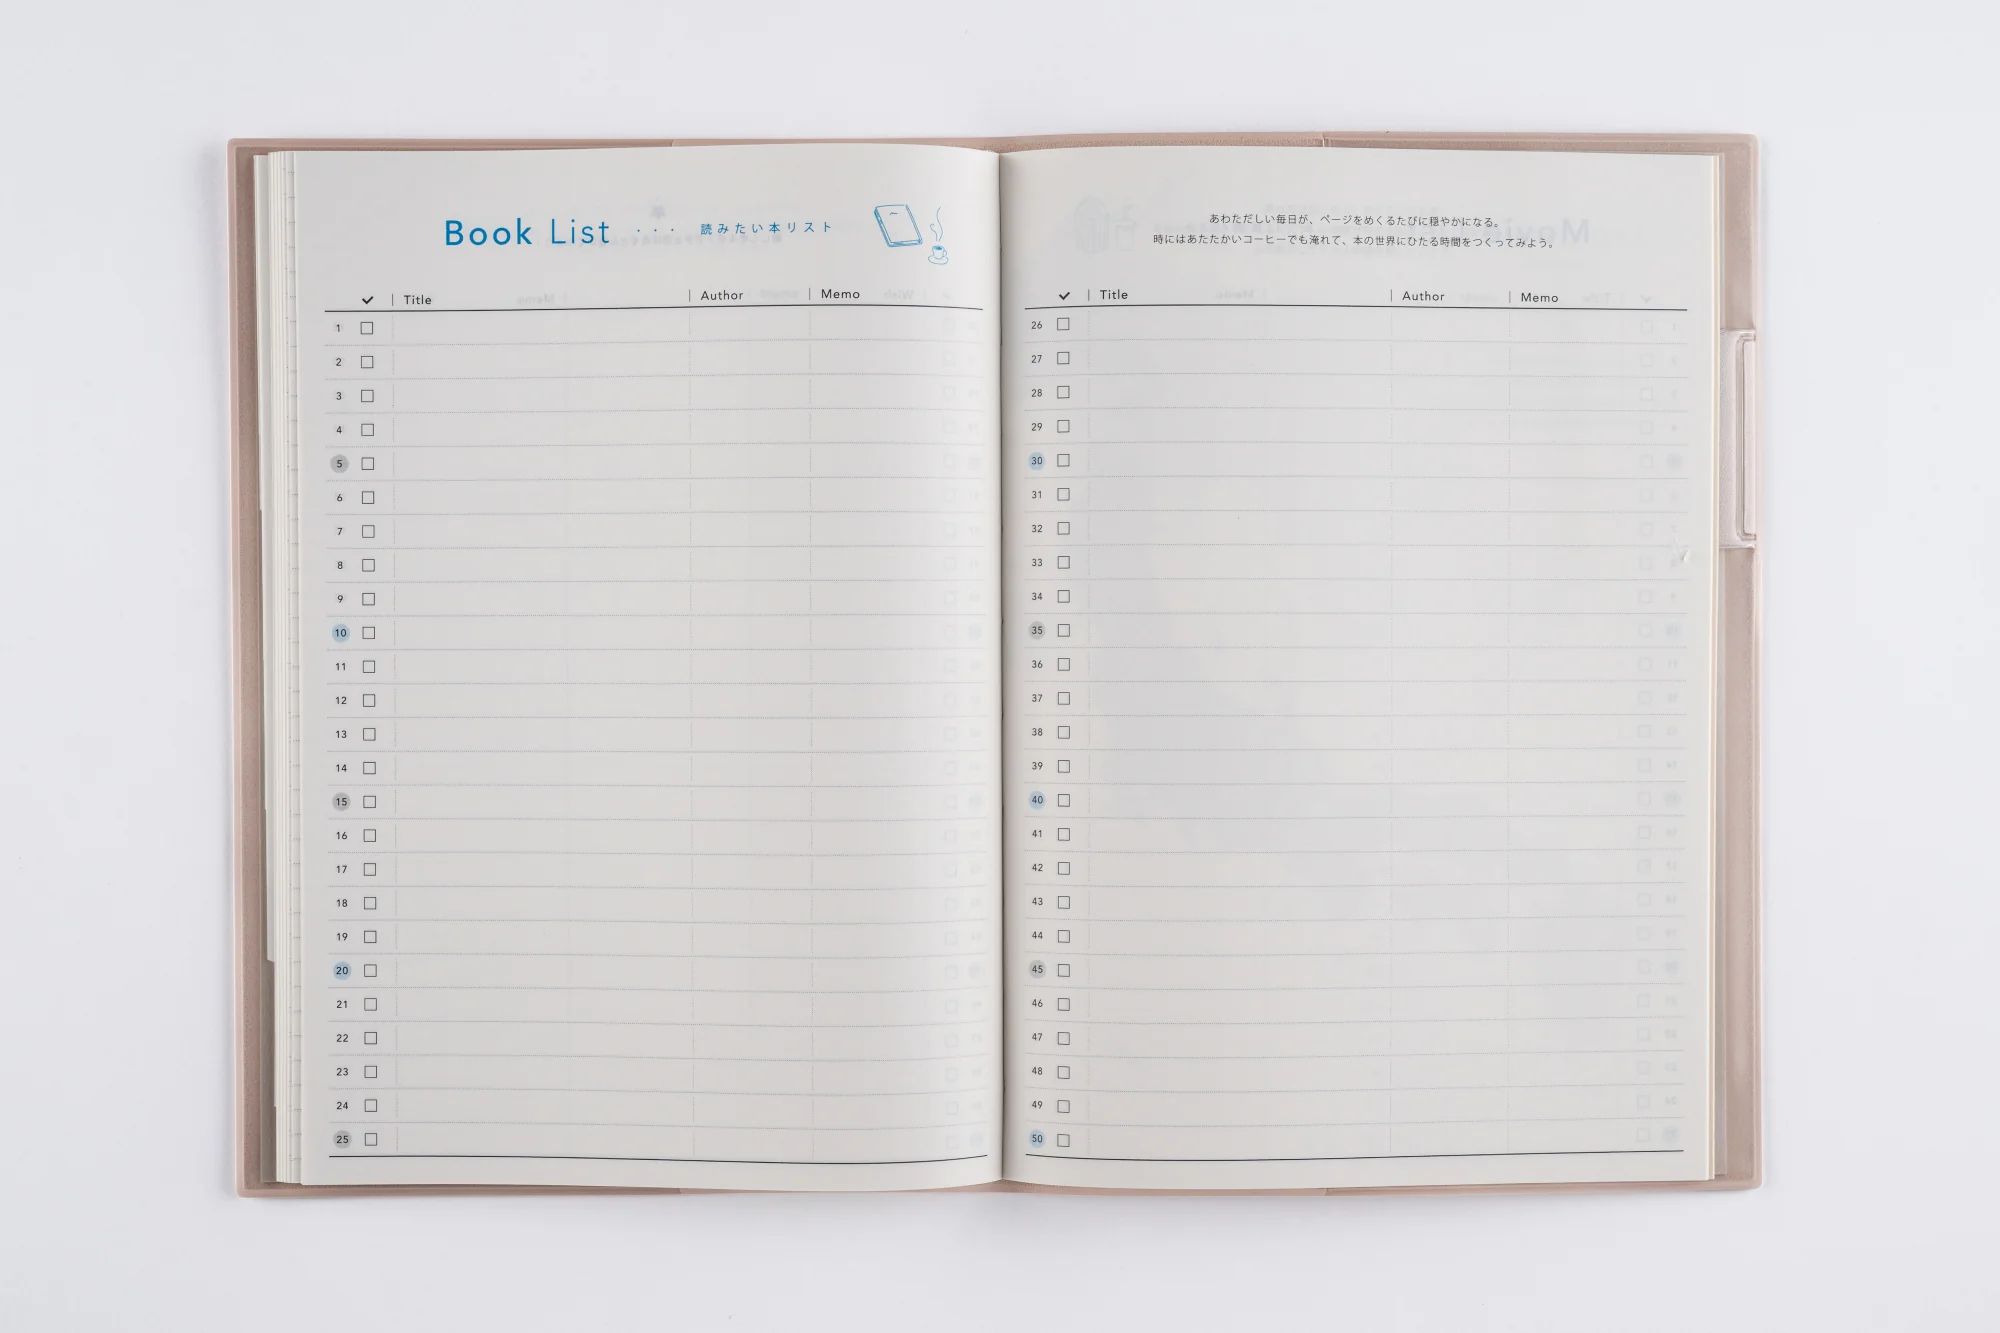 Book List ・・・ 読みたい本リスト
✓ | Title | Author | Memo
1
2
3
4
5
6
7
8
9
10
11
12
13
14
15
16
17
18
19
20
21
22
23
24
25
あわただしい毎日が、ページをめくるたびに穏やかになる。
時にはあたたかいコーヒーでも淹れて、本の世界にひたる時間をつくってみよう。
✓ | Title | Author | Memo
26
27
28
29
30
31
32
33
34
35
36
37
38
39
40
41
42
43
44
45
46
47
48
49
50